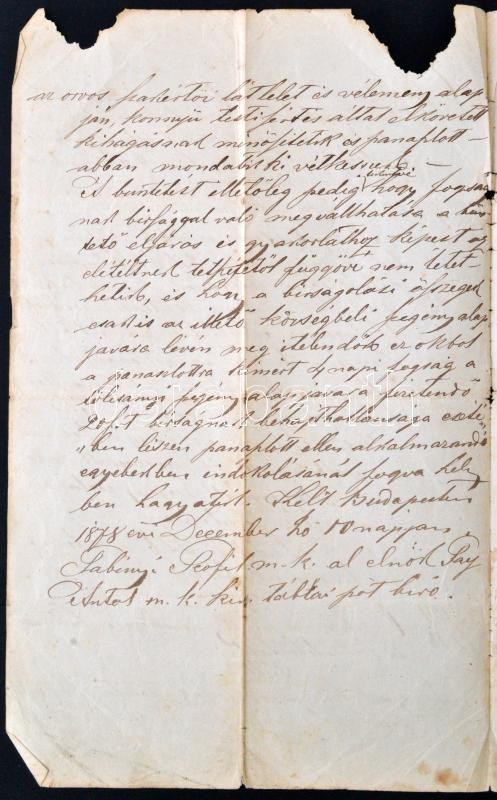 az orvos szakértői látlelet és vélemény alap
ján, könnyű testi sértés által elkövetett
kihágásnak minősítetik és panaszlott
abban mondatik ki vétkesnek
A büntetést illetőleg pedig tekintve hogy fogság
nak birsággal való megválthatása a bün
tető eljárás és gyakorlathoz képest az
elítéltnek tetszésétől függővé nem tétet
hetik, és hogy a birságolási összegek
csakis az illető községbeli szegény alap
javára lévén meg ítélendők ez okból
a panaszlottra kimért 4 napi fogság a
szegény alap javára fizetendő
20 frt birságnak behajthatlansága eseté
"ben lészen panaszlott ellen alkalmazandó
egyebekben indokolásánál fogva hely
ben hagyatik. Kelt Budapesten
1878 évi December hó 10 napján.
Szabényi Teofil m. k. al elnök Pay
Antal m. k. kir. táblai pót biró.